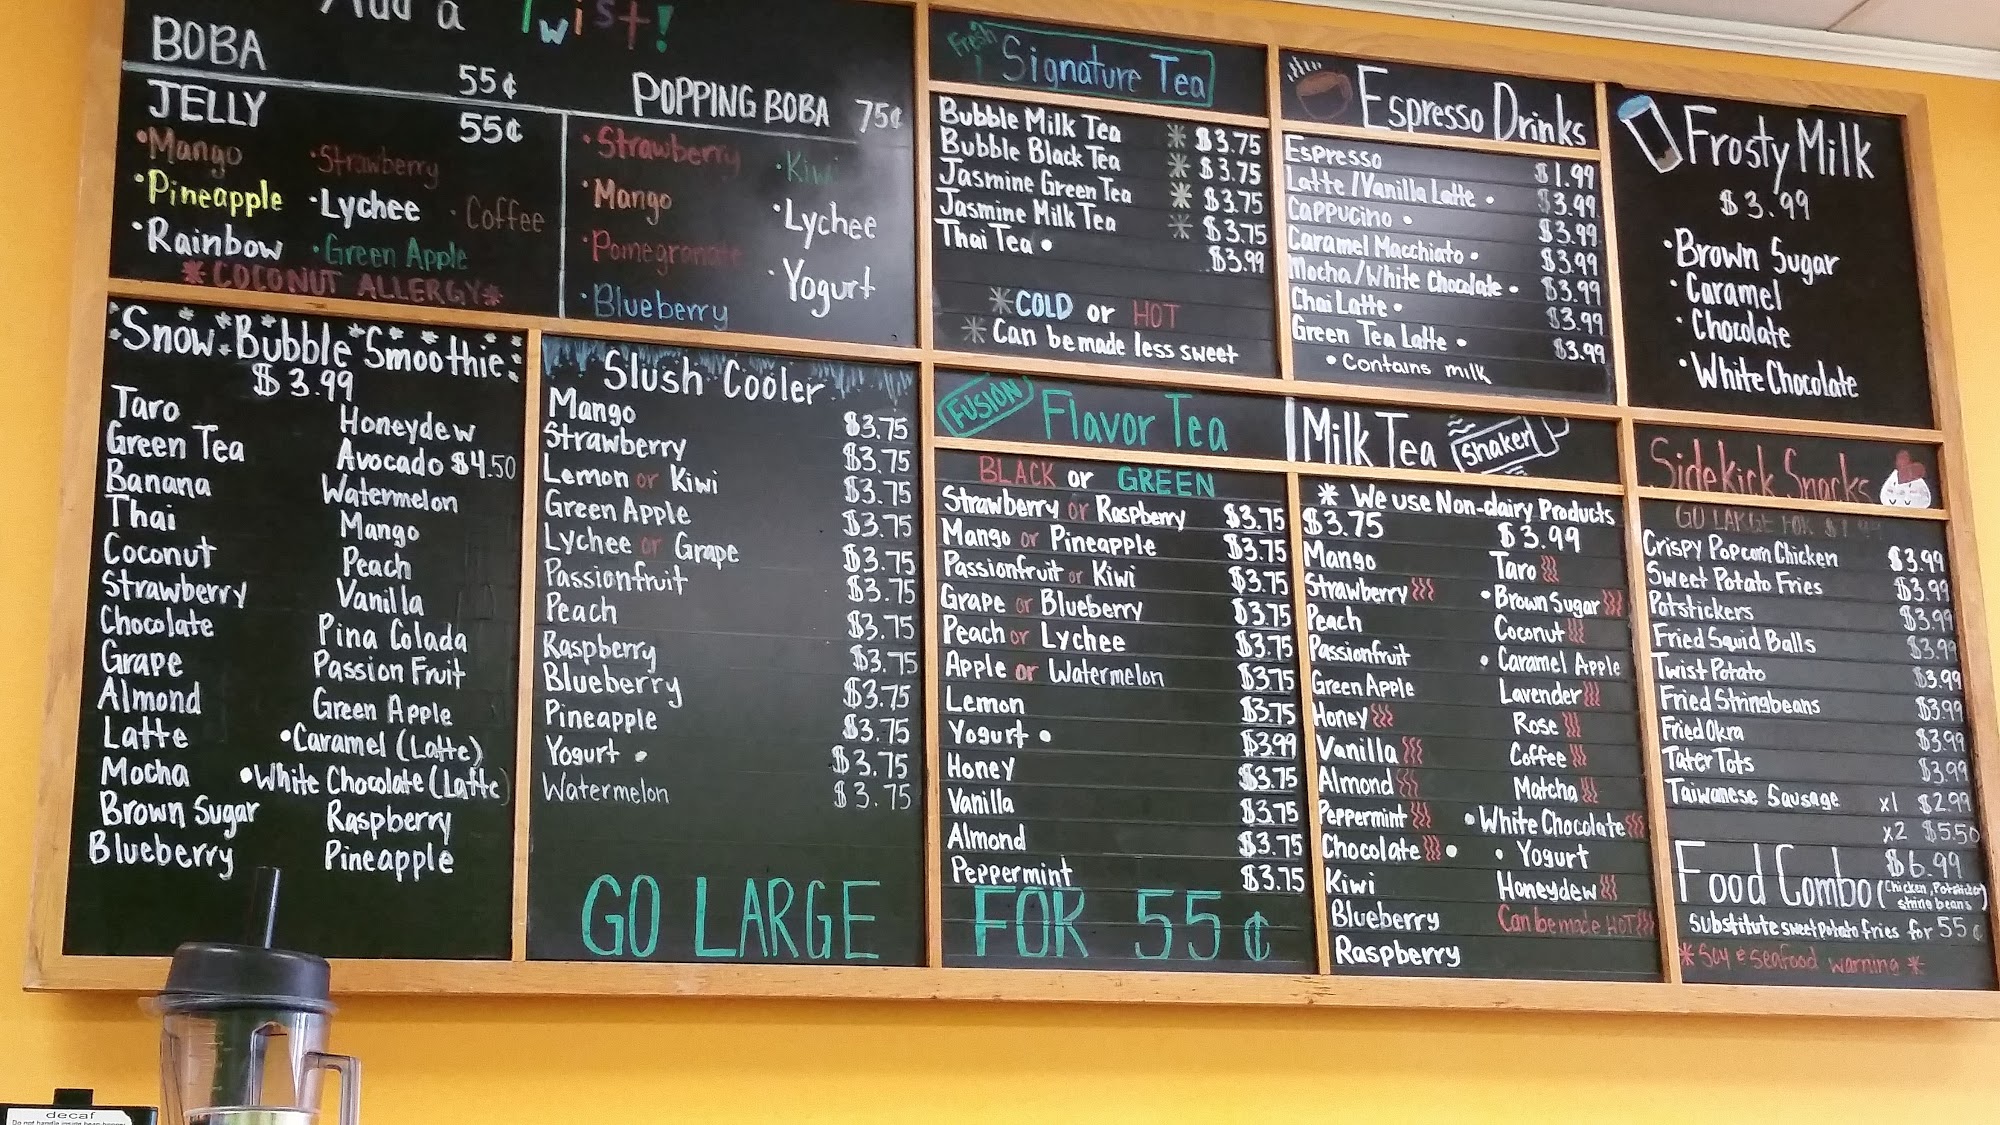 Add a Twist!
BOBA 55¢
JELLY 55¢
•Mango •Strawberry
•Pineapple •Lychee •Coffee
•Rainbow •Green Apple
*COCONUT ALLERGY*
POPPING BOBA 75¢
•Strawberry •Kiwi
•Mango •Lychee
•Pomegranate •Yogurt
•Blueberry
Snow Bubble Smoothie
$3.99
Taro
Green Tea
Banana
Thai
Coconut
Strawberry
Chocolate
Grape
Almond
Latte
Mocha
Brown Sugar
Blueberry
Honeydew
Avocado $4.50
Watermelon
Mango
Peach
Vanilla
Pina Colada
Passion Fruit
Green Apple
•Caramel (Latte)
•White Chocolate (Latte)
Raspberry
Pineapple
Slush Cooler
Mango $3.75
Strawberry $3.75
Lemon or Kiwi $3.75
Green Apple $3.75
Lychee or Grape $3.75
Passionfruit $3.75
Peach $3.75
Raspberry $3.75
Blueberry $3.75
Pineapple $3.75
Yogurt • $3.75
Watermelon $3.75
GO LARGE FOR 55¢
Fresh Signature Tea
Bubble Milk Tea * $3.75
Bubble Black Tea * $3.75
Jasmine Green Tea * $3.75
Jasmine Milk Tea * $3.75
Thai Tea • $3.99
*COLD or HOT
*Can be made less sweet
FUSION Flavor Tea
BLACK or GREEN
Strawberry or Raspberry $3.75
Mango or Pineapple $3.75
Passionfruit or Kiwi $3.75
Grape or Blueberry $3.75
Peach or Lychee $3.75
Apple or Watermelon $3.75
Lemon $3.75
Yogurt • $3.99
Honey $3.75
Vanilla $3.75
Almond $3.75
Peppermint $3.75
Espresso Drinks
Espresso $1.99
Latte/Vanilla Latte • $3.99
Cappucino • $3.99
Caramel Macchiato • $3.99
Mocha/White Chocolate • $3.99
Chai Latte • $3.99
Green Tea Latte • $3.99
• Contains milk
Milk Tea Shaken
* We use Non-dairy Products
$3.75
Mango
Strawberry
Peach
Passionfruit
Green Apple
Honey
Vanilla
Almond
Peppermint
Chocolate •
Kiwi
Blueberry
Raspberry
$3.99
Taro
•Brown Sugar
Coconut
• Caramel Apple
Lavender
Rose
Coffee
Matcha
•White Chocolate
• Yogurt
Honeydew
Can be made HOT
Frosty Milk
$3.99
•Brown Sugar
•Caramel
•Chocolate
•White Chocolate
Sidekick Snacks
GO LARGE FOR $1.99
Crispy Popcorn Chicken $3.99
Sweet Potato Fries $3.99
Potstickers $3.99
Fried Squid Balls $3.99
Twist Potato $3.99
Fried Stringbeans $3.99
Fried Okra $3.99
Tater Tots $3.99
Taiwanese Sausage x1 $2.99
x2 $5.50
Food Combo $6.99
(Chicken, Potsticker, string beans)
Substitute sweet potato fries for 55¢
*Soy & Seafood warning*
decaf